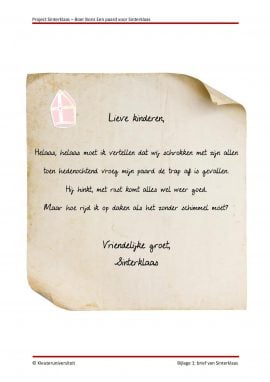 Project Sinterklaas – Boer Boris Een paard voor Sinterklaas
Lieve kinderen,
Helaas, helaas moet ik vertellen dat wij schrokken met zijn allen
toen hedenochtend vroeg mijn paard de trap af is gevallen.
Hij hinkt, met rust komt alles wel weer goed.
Maar hoe rijd ik op daken als het zonder schimmel moet?
Vriendelijke groet,
Sinterklaas
© Kleuteruniversiteit
Bijlage 1: Brief van Sinterklaas